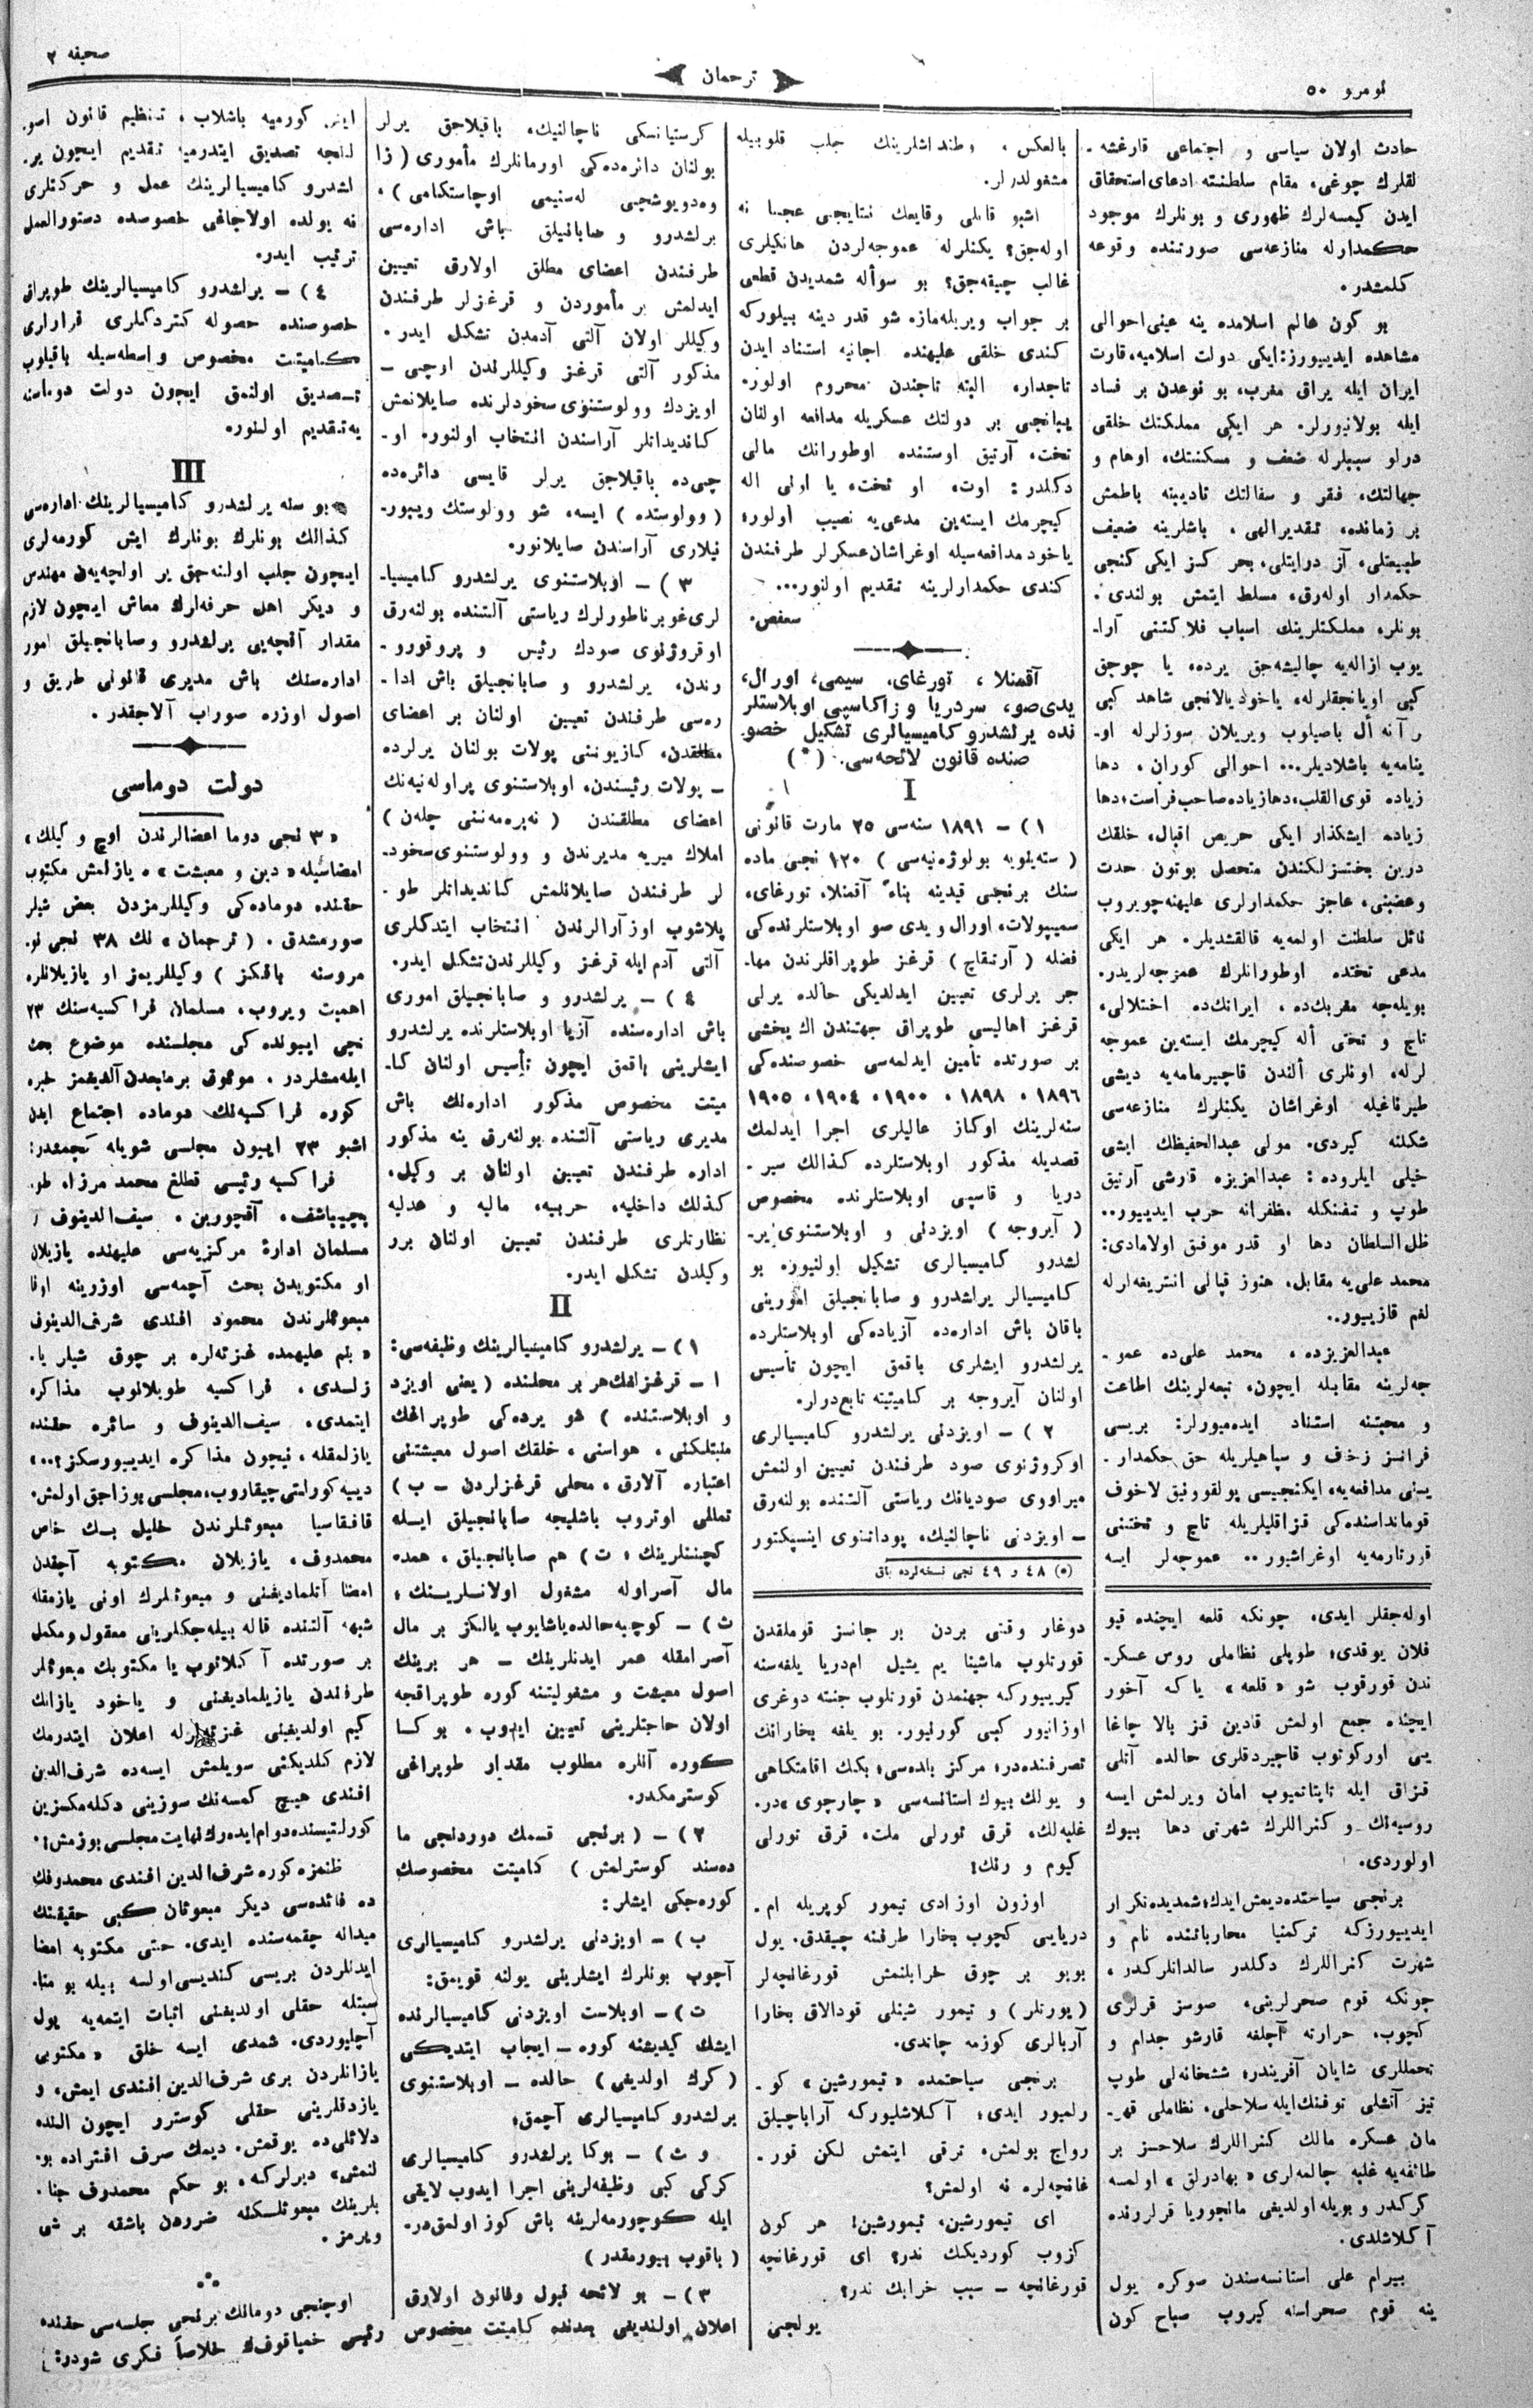 نومرو ٥٠
ترجمان
صحیفه ٢
حادث اولان سیاسی و اجتماعی قارغشه‌ـ
لقلرك چوغی، مقام سلطنته ادعای استحقاق
ایدن کیمسه‌لرك ظهوری و بونلرك موجود
حکمدارله منازعه‌سی صورتنده وقوعه
کلمشدر.
بو کون عالم اسلامده ینه عینی احوالی
مشاهده ایدییورز: ایکی دولت اسلامیه، قارت
ایران ایله یراق مغرب، بو نوعدن بر فساد
ایله بولانیورلر. هر ایکی مملکتك خلقی
درلو سببلرله ضعف و مسکنتك، اوهام و
جهالتك، فقر و سفالتك تادیبنه باطمش
بر زمانده، تقدیر الهی، باشلرینه ضعیف
طبیعتلی، آز درایتلی، بحر کز ایکی کنجی
حکمدار اوله‌رق، مسلط ایتمش بولندی.
بونلر، مملکتلرینك اسباب فلاکتنی آراـ
یوب ازاله‌یه چالیشه‌جق یرده، یا چوجق
کبی اویانجقلرله، یاخود یالانجی شاهد کبی
رآنه أل باصیلوب ویریلان سوزلرله اوـ
ینامه‌یه باشلادیلر... احوالی کوران، دها
زیاده قوی القلب، دها زیاده صاحب فراست، دها
زیاده ایشکذار ایکی حریص اقبال، خلقك
درین بختسزلکندن متحصل بوتون حدت
وغضبنی، عاجز حکمدارلری علیهنه چویروب
نائل سلطنت اولمه‌یه قالقشدیلر. هر ایکی
مدعی تختده اوطورانلرك عمزجه‌لریدر.
بویله‌جه مغربك‌ده، ایرانك‌ده اختلالی،
تاج و تختی أله کیچرمك ایسته‌ین عموجه
لرله، اونلری ألندن قاچیرمامه‌یه دیشی
طیرناغیله اوغراشان یکنلرك منازعه‌سی
شکلنه کیردی. مولی عبدالحفیظك ایشی
خیلی ایلروده: عبدالعزیزه قارشی آرتیق
طوپ و تفنکله مظفرانه حرب ایدییور..
ظل السلطان دها او قدر موفق اولامادی:
محمد علی‌یه مقابل، هنوز قپالی انتریغه‌لرله
لغم قازییور..
عبدالعزیزده، محمد علی‌ده عموـ
جه‌لرینه مقابله ایچون، تبعه‌لرینك اطاعت
و محبتنه استناد ایده‌میورلر: بریسی
فرانسز زخاف و سپاهیلریله حق حکمدارـ
یسنی مدافعه‌یه، ایکنجیسی پولقوونیق لاخوف
قومانداسنده‌کی قزاقلیلریله تاج و تختنی
قورتارمه‌یه اوغراشیور.. عموجه‌لر ایسه
بالعکس، وطنداشلرینك جلب قلوبیله
مشغولدرلر.
اشبو قانلی وقایعك نتایجی عجبا نه
اوله‌جق؟ یکنلرله عموجه‌لردن هانکیلری
غالب چیقه‌جق؟ بو سؤاله شمدیدن قطعی
بر جواب ویریله‌مازه شو قدر دینه بیلورکه
کندی خلقی علیهنده اجانبه استناد ایدن
تاجدار، البته تاجندن محروم اولور.
یبانجی بر دولتك عسکریله مدافعه اولنان
تخت، آرتیق اوستنده اوطورانك مالی
دکلدر: اوت، او تخت، یا اونی اله
کیچرمك ایسته‌ین مدعی‌یه نصیب اولور،
یاخود مدافعه‌سیله اوغراشان عسکرلر طرفندن
کندی حکمدارلرینه تقدیم اولنور...
سعفص.
آقمنلا، تورغای، سیمی، اورال،
یدی‌صو، سردریا و زاکاسپی اوبلاستلر
نده یرلشدرو کامیسیالری تشکیل خصوـ
صنده قانون لائحه‌سی. (*)
I
١) ـ ١٨٩١ سنه‌سی ٢٥ مارت قانونی
(سته‌پنویه پولوژه‌نیه‌سی) ١٢٠ نجی ماده
سنك برنجی قیدینه بناءً آقمنلا، تورغای،
سیمپولات، اورال و یدی صو اوبلاستلرنده‌کی
فضله (آرتقاج) قرغز طوپراقلرندن مهاـ
جر یرلری تعیین ایدلدیکی حالده یرلی
قرغز اهالیسی طوپراق جهتندن اك یخشی
بر صورتده تأمین ایدلمه‌سی خصوصنده‌کی
١٨٩٦، ١٨٩٨، ١٩٠٠، ١٩٠٤، ١٩٠٥
سنه‌لرینك اوکاز عالیلری اجرا ایدلمك
قصدیله مذکور اوبلاستلرده کذالك سیرـ
دریا و قاسپی اوبلاستلرنده مخصوص
(آیروجه) اویزدنی و اوبلاستنوی یرـ
لشدرو کامیسیالری تشکیل اولنیور. بو
کامیسیالر یرلشدرو و صابانجیلق امورینی
باقان باش اداره‌ده آزیاده‌کی اوبلاستلرده
یرلشدرو ایشلری باقمق ایچون تأسیس
اولنان آیروجه بر کامیتیته تابع‌درلر.
٢) ـ اویزدنی یرلشدرو کامیسیالری
اوکروژنوی صود طرفندن تعیین اولنمش
میراووی صودیانك ریاستی آلتنده بولنه‌رق
ـ اویزدنی ناچالنیك، پوداتنوی اینسپکتور
(*) ٤٨ و ٤٩ نجی نسخه‌لرده باق
کرستیانسکی ناچالنیك، باقیلاجق یرلر
بولنان دائره‌ده‌کی اورمانلرك مأموری (زا
وه‌دویوشچی له‌سنیمی اوچاستکامی)،
یرلشدرو و صابانیلق باش اداره‌سی
طرفندن اعضای مطلق اولارق تعیین
ایدلمش بر مأموردن و قرغزلر طرفندن
وکیللر اولان آلتی آدمدن تشکل ایدر.
مذکور آلتی قرغز وکیللرندن اوچی ـ
اویزدك وولوستنوی سخودلرنده صایلانمش
کاندیداتلر آراسندن انتخاب اولنور، اوـ
چی‌ده باقیلاجق یرلر قایسی دائره‌ده
(وولوستده) ایسه، شو وولوستك ویبورـ
نیلاری آراسندن صایلانور.
٣) ـ اوبلاستنوی یرلشدرو کامیسیاـ
لری غوبرناطورلرك ریاستی آلتنده بولنه‌رق
اوقروژنوی صودك رئیس و پروقوروـ
رندن، یرلشدرو و صابانجیلق باش اداـ
ره‌سی طرفندن تعیین اولنان بر اعضای
مطلقدن، کازیوننی پولات بولنان یرلرده
ـ پولات رئیسندن، اوبلاستنوی پراوله‌نیه‌نك
اعضای مطلقندن (نه‌پره‌مه‌ننی چلەن)
املاك میریه مدیرندن و وولوستنوی سخودـ
لر طرفندن صایلانلمش کاندیداتلر طوـ
پلاشوب اوز آرالرندن انتخاب ایتدکلری
آلتی آدم ایله قرغز وکیللرندن تشکل ایدر.
٤) ـ یرلشدرو و صابانجیلق اموری
باش اداره‌سنده آزیا اوبلاستلرنده یرلشدرو
ایشلرینی باقمق ایچون تأسیس اولنان کاـ
میتت مخصوص مذکور اداره‌نك باش
مدیری ریاستی آلتنده بولنه‌رق ینه مذکور
اداره طرفندن تعیین اولنان بر وکیل،
کذلك داخلیه، حربیه، مالیه و عدلیه
نظارتلری طرفندن تعیین اولنان برر
وکیلدن تشکل ایدر.
II
١) ـ یرلشدرو کامیسیالرینك وظیفه‌سی:
ا ـ قرغزلغك هر بر محلنده (یعنی اویزد
و اوبلاستنده) شو یرده‌کی طوپراغك
منبتلکنی، هواسنی، خلقك اصول معیشتنی
اعتباره آلارق، محلی قرغزلردن ـ ب)
تمالمی اوتروب باشلیجه صابانجیلق ایسله
کچنلرینك، ت) هم صابانجیلق، همده
مال آصراوله مشغول اولانسلرینك،
ث) ـ کوچبه حالده یاشایوب یالکز بر مال
آصرامقله عمر ایدنلرینك ـ هر برینك
اصول معیشت و مشغولیتنه کوره طوپراقجه
اولان حاجتلرینی تعیین ایدوب، بوکا
کوره آنلره مطلوب مقدار طوپراغی
کوسترمکدر.
٢) ـ (برنجی قسمك دوردنجی ما
ده‌سند کوسترلمش) کامیتت مخصوصك
کوره‌جکی ایشلر:
ب) ـ اویزدنی یرلشدرو کامیسیالری
آچوب بونلرك ایشلرینی یولنه قویمق:
ت) ـ اوبلاست اویزدنی کامیسیالرنده
ایشك کیدیشنه کوره ـ ایجاب ایتدیکی
(کرك اولدیغی) حالده ـ اوبلاستنوی
یرلشدرو کامیسیالری آچمق؛
و ث) ـ بوکا یرلشدرو کامیسیالری
کرکی کبی وظیفه‌لرینی اجرا ایدوب لایقی
ایله کوچورمه‌لرینه باش کوز اولمق‌در.
(باقوب بیورمقدر)
٣) ـ بو لائحه قبول وقانون اولارق
اعلان اولندیغی بعدنده کامیتت مخصوص
ایش کورمیه باشلاب، تنظیم قانون اصوـ
لنجه تصدیق ایتدرمیه تقدیم ایچون یرـ
لشدرو کامیسیالرینك عمل و حرکتلری
نه یولده اولاجاغی خصوصده دستورالعمل
ترتیب ایدر.
٤) ـ یرلشدرو کامیسیالرینك طوپراق
خصوصنده حصوله کتردکلری قرارلری
کامیتت مخصوص واسطه‌سیله باقیلوب
تصدیق اولنمق ایچون دولت دوماسنه
یه تقدیم اولنور.
III
بو سنه یرلشدرو کامیسیالرینك اداره‌سی
کذالك بونلرك بونلرك ایش کورمه‌لری
ایچون جلب اولنه‌جق یر اولچه‌یه‌ن مهندس
و دیکر اهل حرفه‌لرك معاش ایچون لازم
مقدار آقچه‌یی یرلشدرو وصابانجیلق امور
اداره‌سنك باش مدیری قانونی طریق و
اصول اوزره صوراب آلاجقدر.
دولت دوماسی
«٣ نجی دوما اعضالرندن اوچ وکیلك»
امضاسیله «دین و معیشت»ه یازلمش مکتوب
حقنده دوماده‌کی وکیللرمزدن بعض شیلر
صورمشدق. (ترجمان» نك ٣٨ نجی نوـ
مروسنه باقکز) وکیللریمز او یازیلانلره
اهمیت ویروب، مسلمان فراکسیه‌سنك ٢٣
نجی اییونده کی مجلسنده موضوع بحث
ایله‌مشلردر. موثوق بر منبعدن آلدیغمز خبره
کوره فراکسیه‌نك دوماده اجتماع ایدن
اشبو ٢٣ اییون مجلسی شویله کچمشدر:
فراکسیه رئیسی قطلغ محمد مرزا، طوـ
پچیباشف، آقچورین، سیف‌الدینوف
مسلمان ادارهٔ مرکزیه‌سی علیهنده یازیلان
او مکتوبدن بحث آچمه‌سی اوزرینه اوفا
مبعوثلرندن محمود افندی شرف‌الدینوف
«بنم علیهمده غزته‌لره بر چوق شیلر یاـ
زلدی، فراکسیه طوپلانوب مذاکره
ایتمدی، سیف‌الدینوف و سائره حقنده
یازلمقله، نیچون مذاکره ایدییورسکز؟..»
دییه کورلتی چیقاروب، مجلسی بوزاجق اولمش.
قافقاسیا مبعوثلرندن خلیل بك خاص
محمدوف، یازیلان مکتوبه آچقدن
امضا آتلمادیغنی و مبعوثلرك اونی یازمقله
شبهه آلتنده قاله بیله‌جکلرینی معقول ومکمل
بر صورتده آکلاتوب یا مکتوبك مبعوثلر
طرفندن یازیلمادیغنی و یاخود یازانك
کیم اولدیغنی غزته‌لرله اعلان ایتدرمك
لازم کلدیکنی سویلمش ایسه‌ده شرف‌الدین
افندی هیچ کمسه‌نك سوزینی دکله‌مکسزین
کورلتیسنده دوام ایده‌رك نهایت مجلسی بوزمش.
ظنمزه کوره شرف‌الدین افندی محمدوفك
ده فائده‌سی دیکر مبعوثان کبی حقیقتك
میدانه چقمه‌سنده ایدی. حتی مکتوبه امضا
ایدنلردن بریسی کندیسی اولسه بیله بو مناـ
سبتله حقلی اولدیغنی اثبات ایتمه‌یه یول
آچلیوردی. شمدی ایسه خلق «مکتوبی
یازانلردن بری شرف‌الدین افندی ایمش، و
یازدقلرینی حقلی کوسترو ایچون النده
دلائلی‌ده یوقمش. دیمك صرف افتراده بوـ
لنمش» دیرلرکه، بو حکم محمدوف جناـ
بلرینك مبعوثلسکنه ضرردن باشقه بر شی
ویرمز.
اوچنجی دومانك برنجی جلسه‌سی حقنده
رئیس خمیاقوفك خلاصهٔ فکری شودر:
اوله‌جقلر ایدی، چونکه قلعه ایچنده قپو
فلان یوقدی؛ طوپلی نظاملی روس عسکرـ
ندن قورقوب شو «قلعه» یاکه آخور
ایچنده جمع اولمش قادین قز بالا چاغا
یی اورکوتوب قاچیردقلری حالده آتلی
قزاق ایله تاپتاتمیوب امان ویرلمش ایسه
روسیه‌نك و کنراللرك شهرتی دها بیوك
اولوردی.
برنجی سیاحتده دیمش ایدك؛ شمدیده تکرار
ایدییورزکه ترکمنیا محارباتنده نام و
شهرت کنراللرك دکلدر سالداتلرکدر،
چونکه قوم صحرلرینی، صوسز قرلری
کچوب، حرارته آچلغه قارشو جدام و
تحمللری شایان آفریندر؛ ششخانه‌لی طوپ
تیز آتشلی توفنك ایله سلاحلی، نظاملی قهرـ
مان عسکره مالك کنراللرك سلاحسز بر
طائفه‌یه غلبه چالمه‌لری «بهادرلق» اولمسه
کرکدر و بویله اولدیغی مانچوریا قرلرونده
آکلاشلدی.
بیرام علی استانسه‌سندن صوکره یول
ینه قوم صحراسنه کیروب صباح کون
دوغار وقتی بردن بر جانسز قوملقدن
قورتلوب ماشینا یم یشیل ام‌دریا یلفه‌سنه
کیرییورکه جهنمدن قورتلوب جنته دوغری
اوزانیور کبی کورلیور. بو یلفه بخارانك
تصرفنده‌در؛ مرکز بلده‌سی؛ بکك اقامتکاهی
و یولك بیوك استانسه‌سی «چارجوی»‌در.
غلبه‌لك، قرق تورلی ملت، قرق تورلی
کیوم و رنك!
اوزون اوزادی تیمور کوپریله امـ
دریایی کچوب بخارا طرفنه چیقدق. یول
بویو بر چوق خرابلنمش قورغانچه‌لر
(یورتلر) و تیمور شینلی قودالاق بخارا
آربالری کوزمه چاندی.
برنجی سیاحتمده «تیمورشین» کوـ
رلمیور ایدی؛ آکلاشلیورکه آراباچیلق
رواج بولمش، ترقی ایتمش لکن قورـ
غانچه‌لره نه اولمش؟
ای تیمورشین، تیمورشین! هر کون
کزوب کوردیکك ندر؟ ای قورغانچه
قورغانچه ـ سبب خرابك ندر؟
یولجی